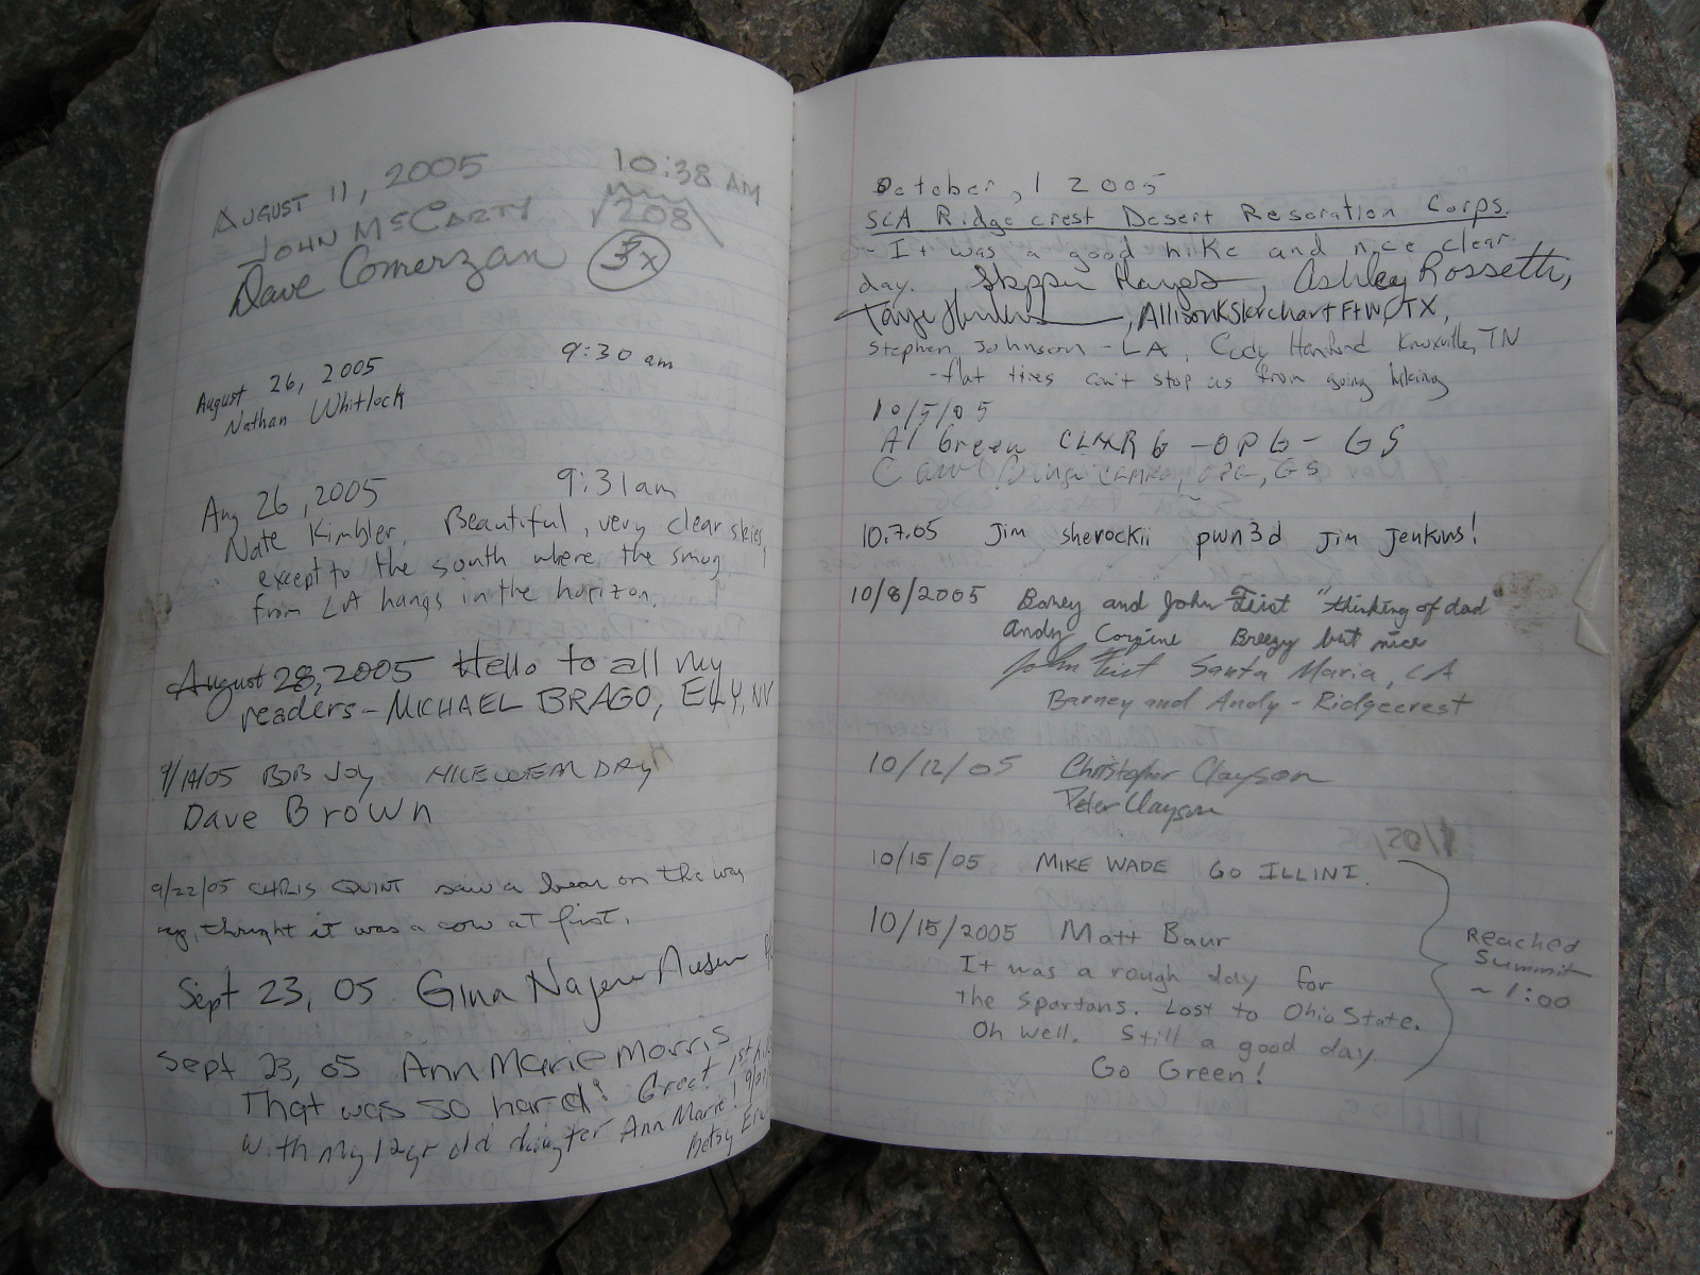 August 11, 2005 10:38 AM
John McCarty 208
Dave Comerzan 3x
August 26, 2005 9:30 am
Nathan Whitlock
Aug 26, 2005 9:31am
Nate Kimbler. Beautiful, very clear skies,
except to the south where the smog
from LA hangs in the horizon.
August 28, 2005 Hello to all my
readers - MICHAEL BRAGO, ELY, NV
9/14/05 BOB JOY
Dave Brown
9/22/05 CHRIS QUINT saw a bear on the way
up, thought it was a cow at first.
Sept 23, 05 Gina
Sept 23, 05 Ann Marie Morris
That was so hard! Great 1st
with my 12 yr old daughter Ann Marie!
Betsy
October, 1 2005
SCA Ridgecrest Desert Resoration Corps.
- It was a good hike and nice clear
day. Ashley Rossetti,
FtW, TX,
Stephen Johnson - LA, Cody Knoxville, TN
- flat tires can't stop us from going hiking
10/5/05
Al Green CLMRG - OPG - GS
10.7.05 Jim sherockii pwn3d Jim Jenkins!
10/8/2005 Barney and John Feist "thinking of dad"
Andy Corzine Breezy but nice
John Feist Santa Maria, CA
Barney and Andy - Ridgecrest
10/12/05 Christopher Clayson
Peter Clayson
10/15/05 MIKE WADE GO ILLINI.
10/15/2005 Matt Baur
It was a rough day for
the Spartans. Lost to Ohio State.
Oh well. Still a good day
Go Green!
Reached
Summit
~ 1:00